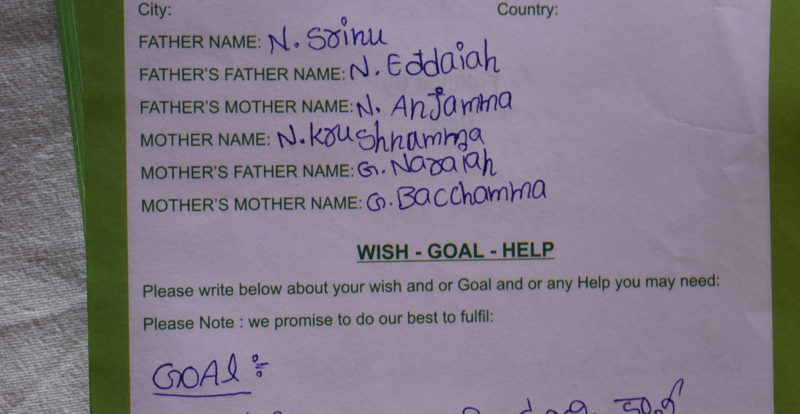 City: Country:
FATHER NAME: N. Srinu
FATHER'S FATHER NAME: N. Eddaiah
FATHER'S MOTHER NAME: N. Anjamma
MOTHER NAME: N. Krushnamma
MOTHER'S FATHER NAME: G. Naraiah
MOTHER'S MOTHER NAME: G. Bacchamma
WISH - GOAL - HELP
Please write below about your wish and or Goal and or any Help you may need:
Please Note : we promise to do our best to fulfil:
GOAL :-